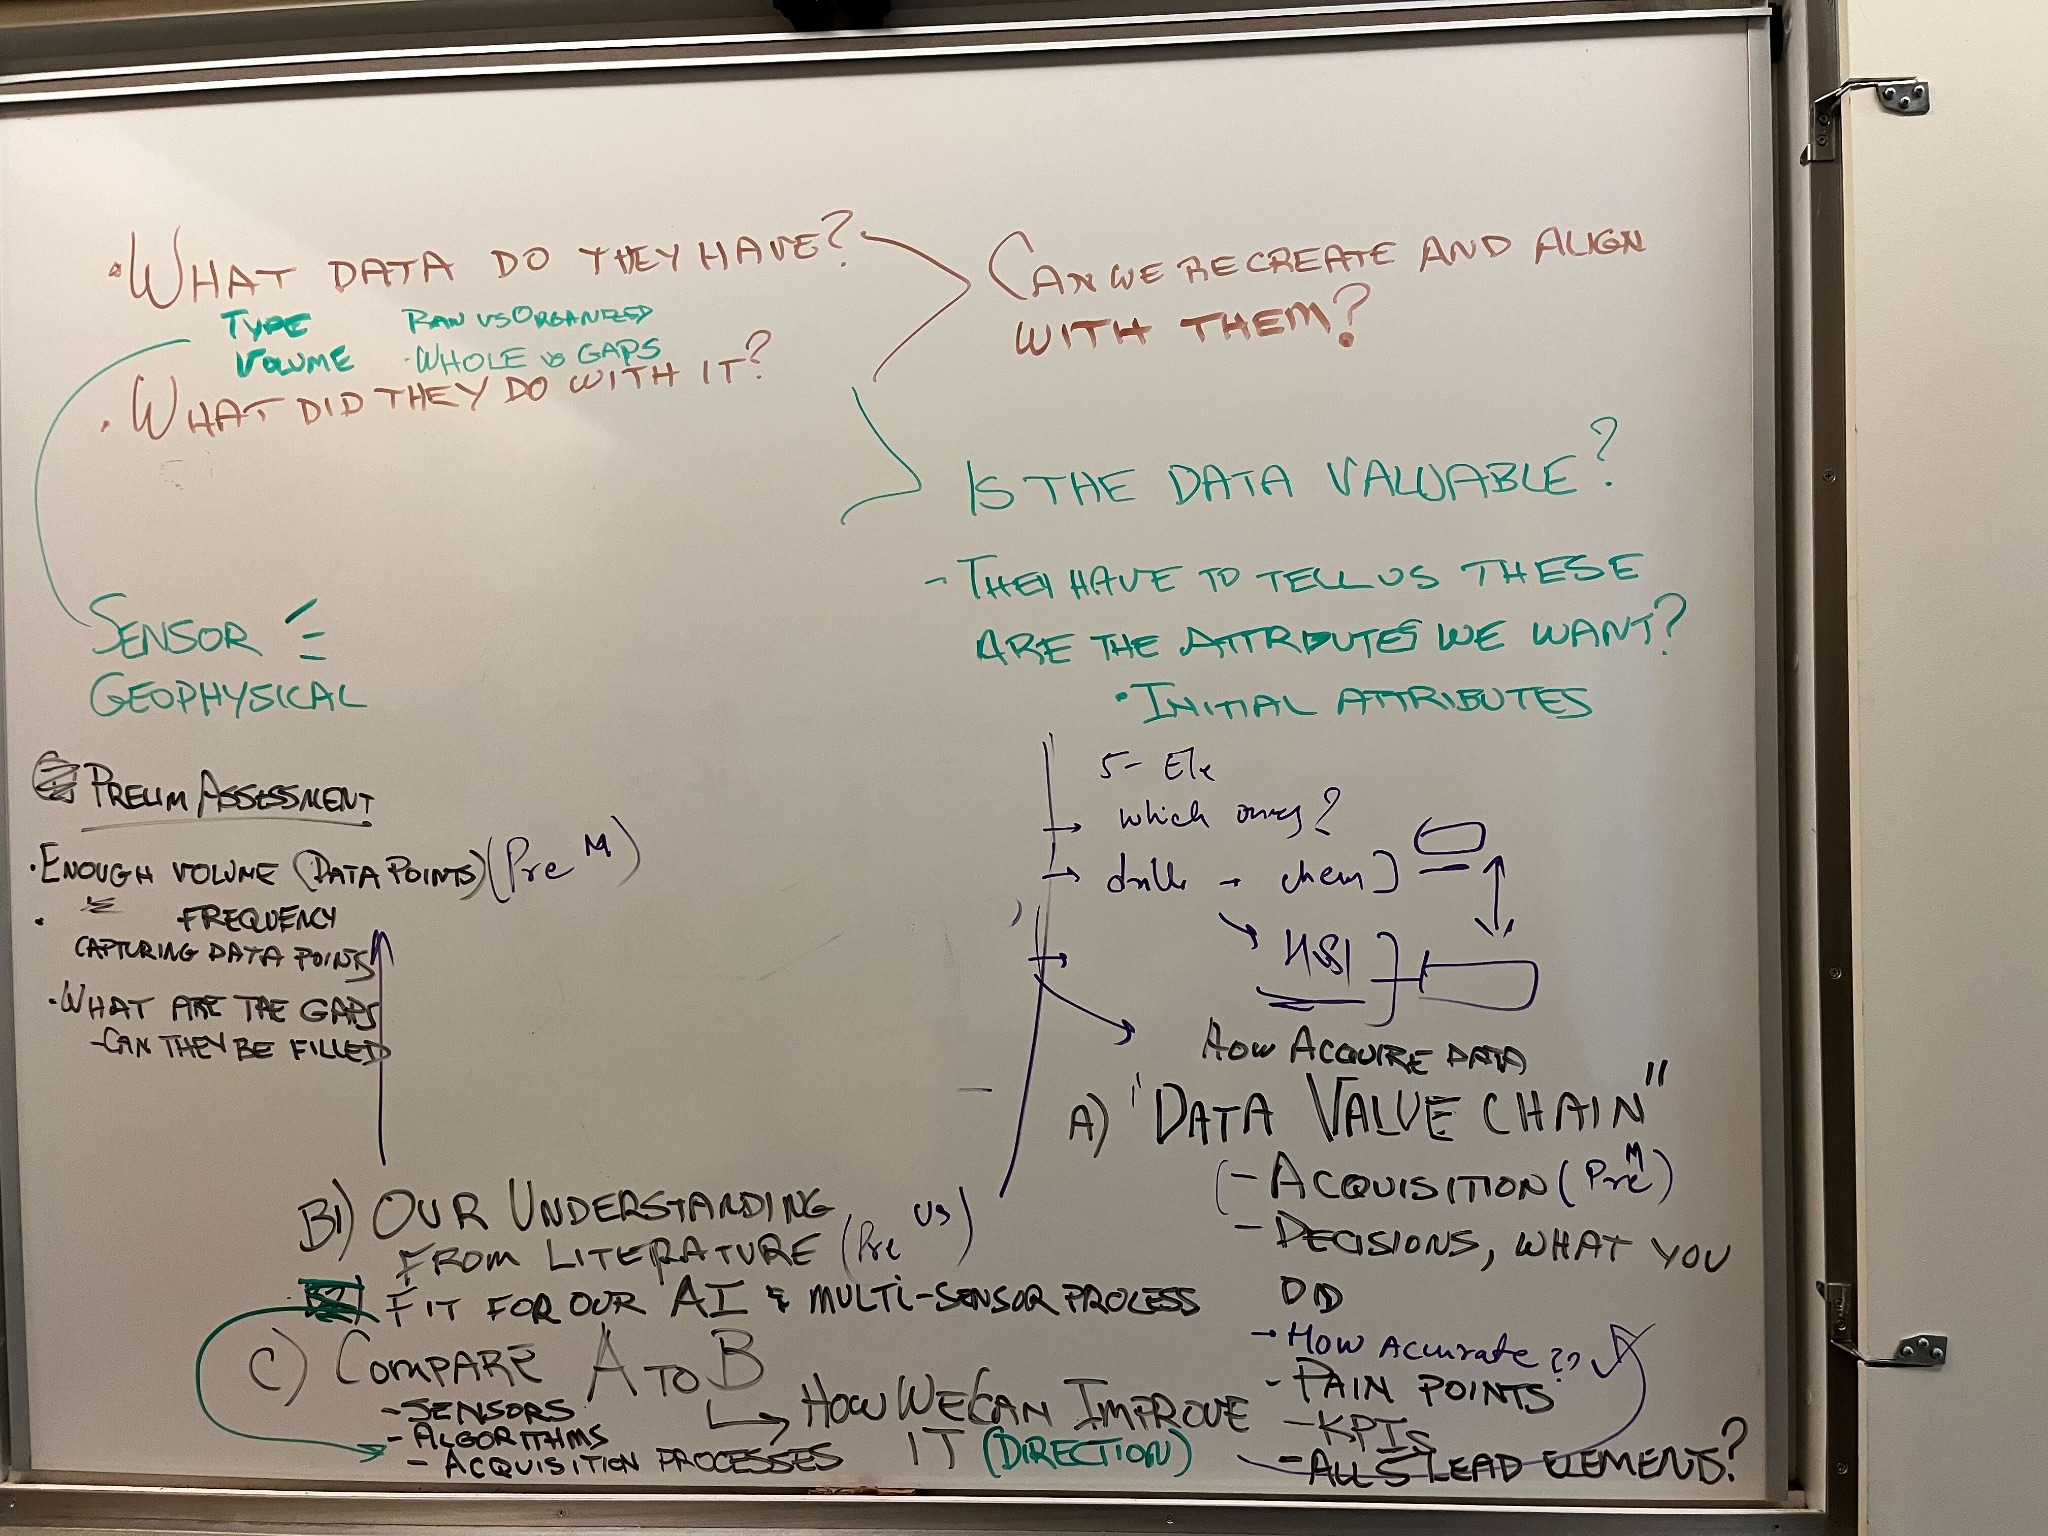 • WHAT DATA DO THEY HAVE?
TYPE RAW VS ORGANIZED
VOLUME • WHOLE VS GAPS
• WHAT DID THEY DO WITH IT?
CAN WE RECREATE AND ALIGN
WITH THEM?
IS THE DATA VALUABLE?
- THEY HAVE TO TELL US THESE
ARE THE ATTRIBUTES WE WANT?
• INITIAL ATTRIBUTES
SENSOR
GEOPHYSICAL
PRELIM ASSESSMENT
• ENOUGH VOLUME (DATA POINTS) (Pre M)
• FREQUENCY
CAPTURING DATA POINTS
• WHAT ARE THE GAPS
- CAN THEY BE FILLED
5- Ele
which ones?
→ chem]
HSI
HOW ACQUIRE DATA
A) "DATA VALUE CHAIN"
(- ACQUISITION (Pre M)
- DECISIONS, WHAT YOU
DID
- HOW Accurate ??
- PAIN POINTS
- KPIs
- ALL 5 LEAD ELEMENTS?
B1) OUR UNDERSTANDING
FROM LITERATURE (Pre US)
FIT FOR OUR AI & MULTI-SENSOR PROCESS
C) COMPARE A TO B
- SENSORS
- ALGORITHMS
- ACQUISITION PROCESSES
HOW WE CAN IMPROVE
IT (DIRECTION)